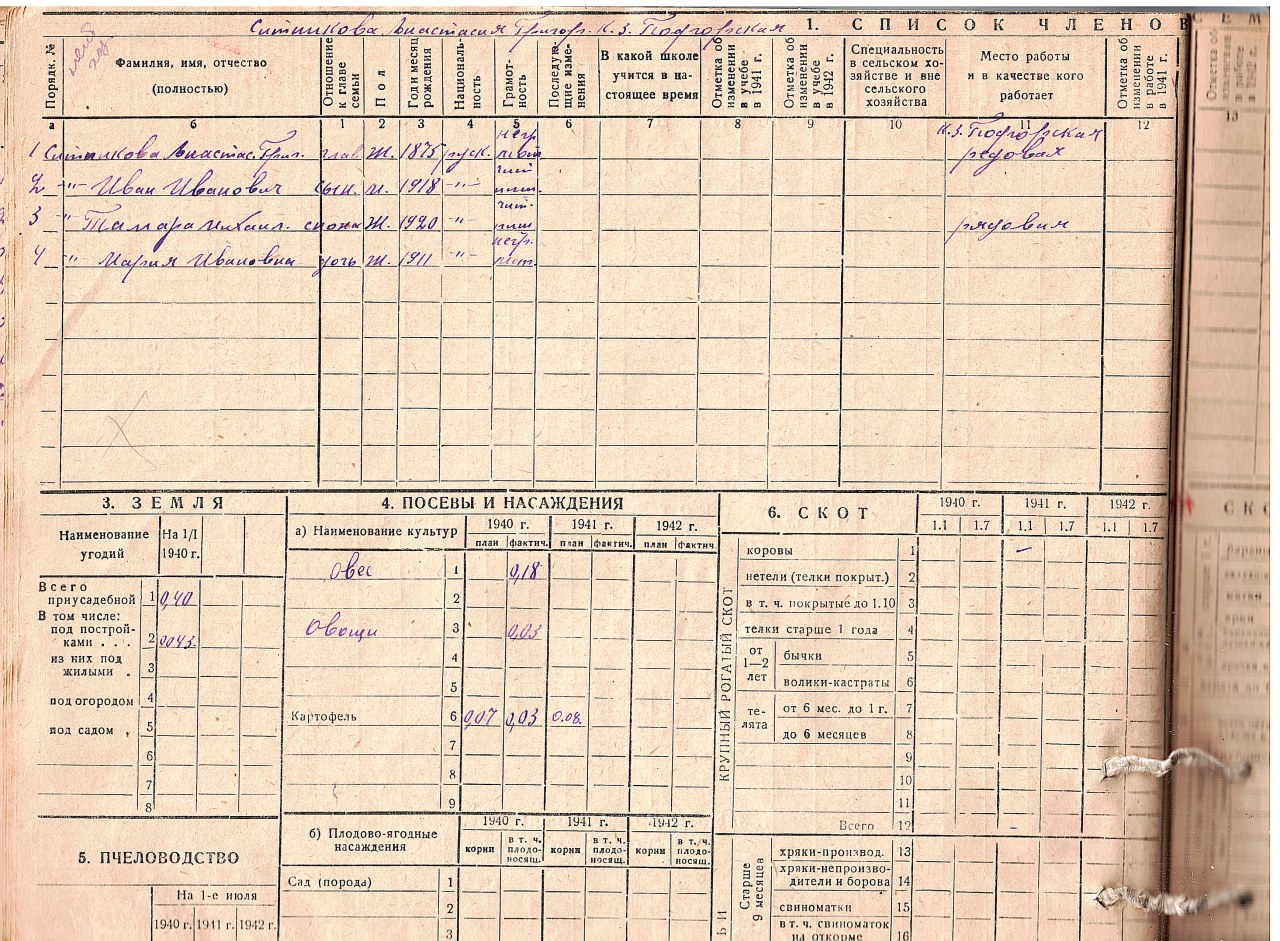 Ситникова Анастасия Григор. К.З. Подгорская
1. СПИСОК ЧЛЕНОВ
Порядк. №
Фамилия, имя, отчество
(полностью)
Отношение к главе семьи
Пол
Год и месяц рождения
Националь-ность
Грамот-ность
Последую-щие изме-нения
В какой школе
учится в на-
стоящее время
Отметка об изменении в учебе в 1941 г.
Отметка об изменении в учебе в 1942 г.
Специальность
в сельском хо-
зяйстве и вне
сельского
хозяйства
Место работы
и в качестве кого
работает
Отметка об изменении в работе в 1941 г.
а б 1 2 3 4 5 6 7 8 9 10 11 12 13
1 Ситникова Анастас. Григ. глав. Ж. 1875 русск. негр. К.З. Подгорская рядовая
2 -"- Иван Иванович сын. м. 1918 -"-
3 -"- Тамара Михаил. сноха Ж. 1920 -"- рядовая
4 -"- Мария Ивановна дочь Ж. 1911 -"- негр.
3. ЗЕМЛЯ
Наименование
угодий
На 1/I
1940 г.
Всего
приусадебной 1 0,40
В том числе:
под построй-
ками . . . 2 0043
из них под
жилыми . 3
под огородом 4
под садом , 5
6
7
8
5. ПЧЕЛОВОДСТВО
На 1-е июля
1940 г. 1941 г. 1942 г.
4. ПОСЕВЫ И НАСАЖДЕНИЯ
а) Наименование культур
1940 г. 1941 г. 1942 г.
план фактич. план фактич. план фактич.
Овес 1 0,18
2
Овощи 3 0,03
4
5
Картофель 6 0,07 0,03 0.08.
7
8
9
б) Плодово-ягодные
насаждения
1940 г. 1941 г. 1942 г.
корни в т. ч. плодо-носящ. корни в т. ч. плодо-носящ. корни в т. ч. плодо-носящ.
Сад (порода) 1
2
3
6. СКОТ
1940 г. 1941 г. 1942 г.
1.1 1.7 1.1 1.7 1.1 1.7
КРУПНЫЙ РОГАТЫЙ СКОТ
коровы 1 –
нетели (телки покрыт.) 2
в т. ч. покрытые до 1.10 3
телки старше 1 года 4
от
1—2
лет
бычки 5
волики-кастраты 6
те-
лята
от 6 мес. до 1 г. 7
до 6 месяцев 8
9
10
11
Всего 12 -
Старше 9 месяцев
хряки-производ. 13
хряки-непроизво-
дители и борова 14
свиноматки 15
в т. ч. свиноматок
на откорме 16